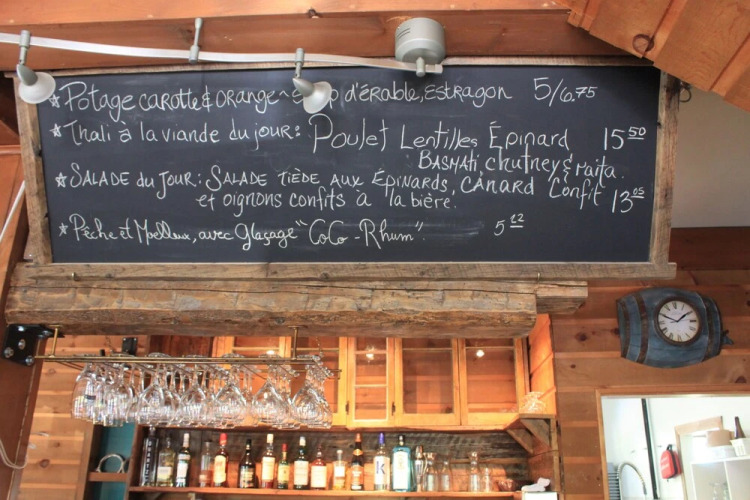 ★ Potage carotte & orange ~ d'érable, Estragon 5/6.75
★ Thali à la viande du jour: Poulet Lentilles Épinard 15 50
Basmati, chutney & raita.
★ Salade du jour: Salade tiède aux épinards, canard confit 13 05
et oignons confits à la bière.
★ Pêche et Moelleux, avec Glaçage "CoCo-Rhum". 5 12